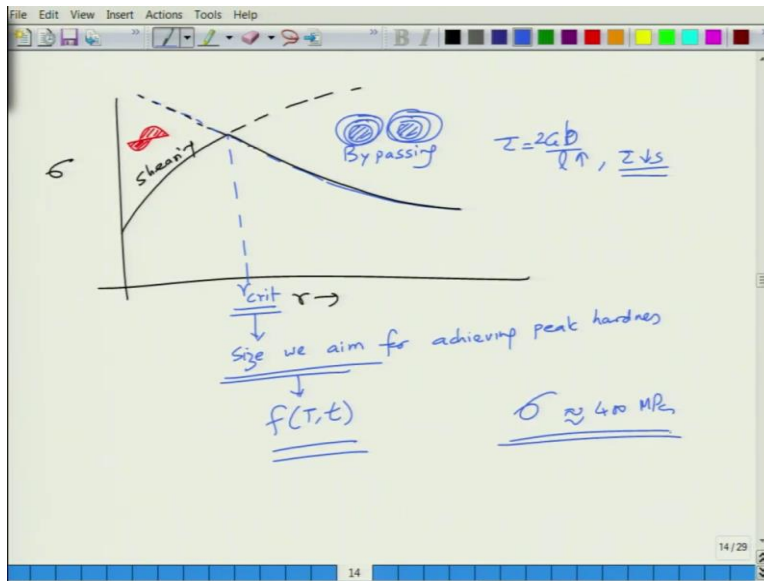 File Edit View Insert Actions Tools Help
B I
σ
Shearing
By passing
τ = 2Gb/l↑, τ↓s
r crit r →
Size we aim for achieving peak hardnes
f(T,t)
σ ≈ 400 MPa
14/29
14